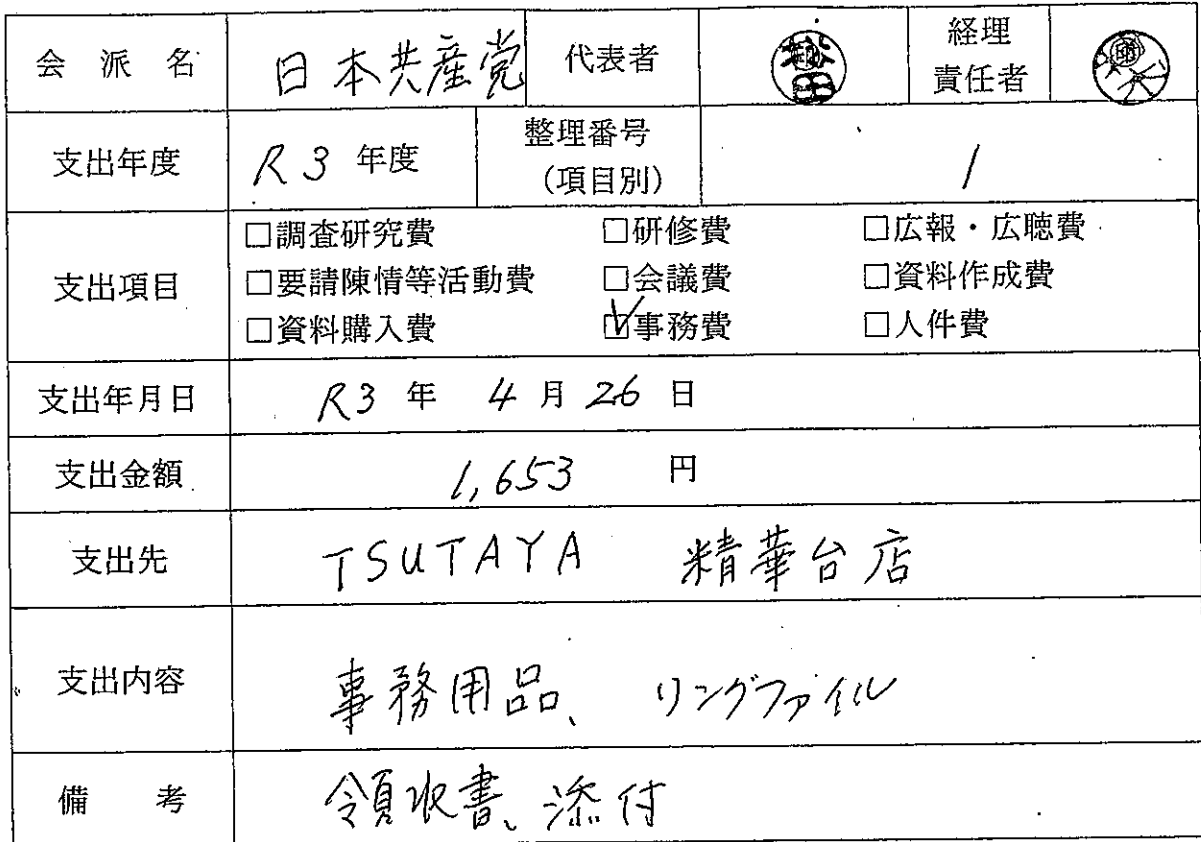 会派名 日本共産党 代表者 経理責任者
支出年度 R3年度 整理番号(項目別) 1
支出項目
□調査研究費 □研修費 □広報・広聴費
□要請陳情等活動費 □会議費 □資料作成費
□資料購入費 ☑事務費 □人件費
支出年月日 R3年 4月26日
支出金額 1,653 円
支出先 TSUTAYA 精華台店
支出内容 事務用品、リングファイル
備考 領収書、添付